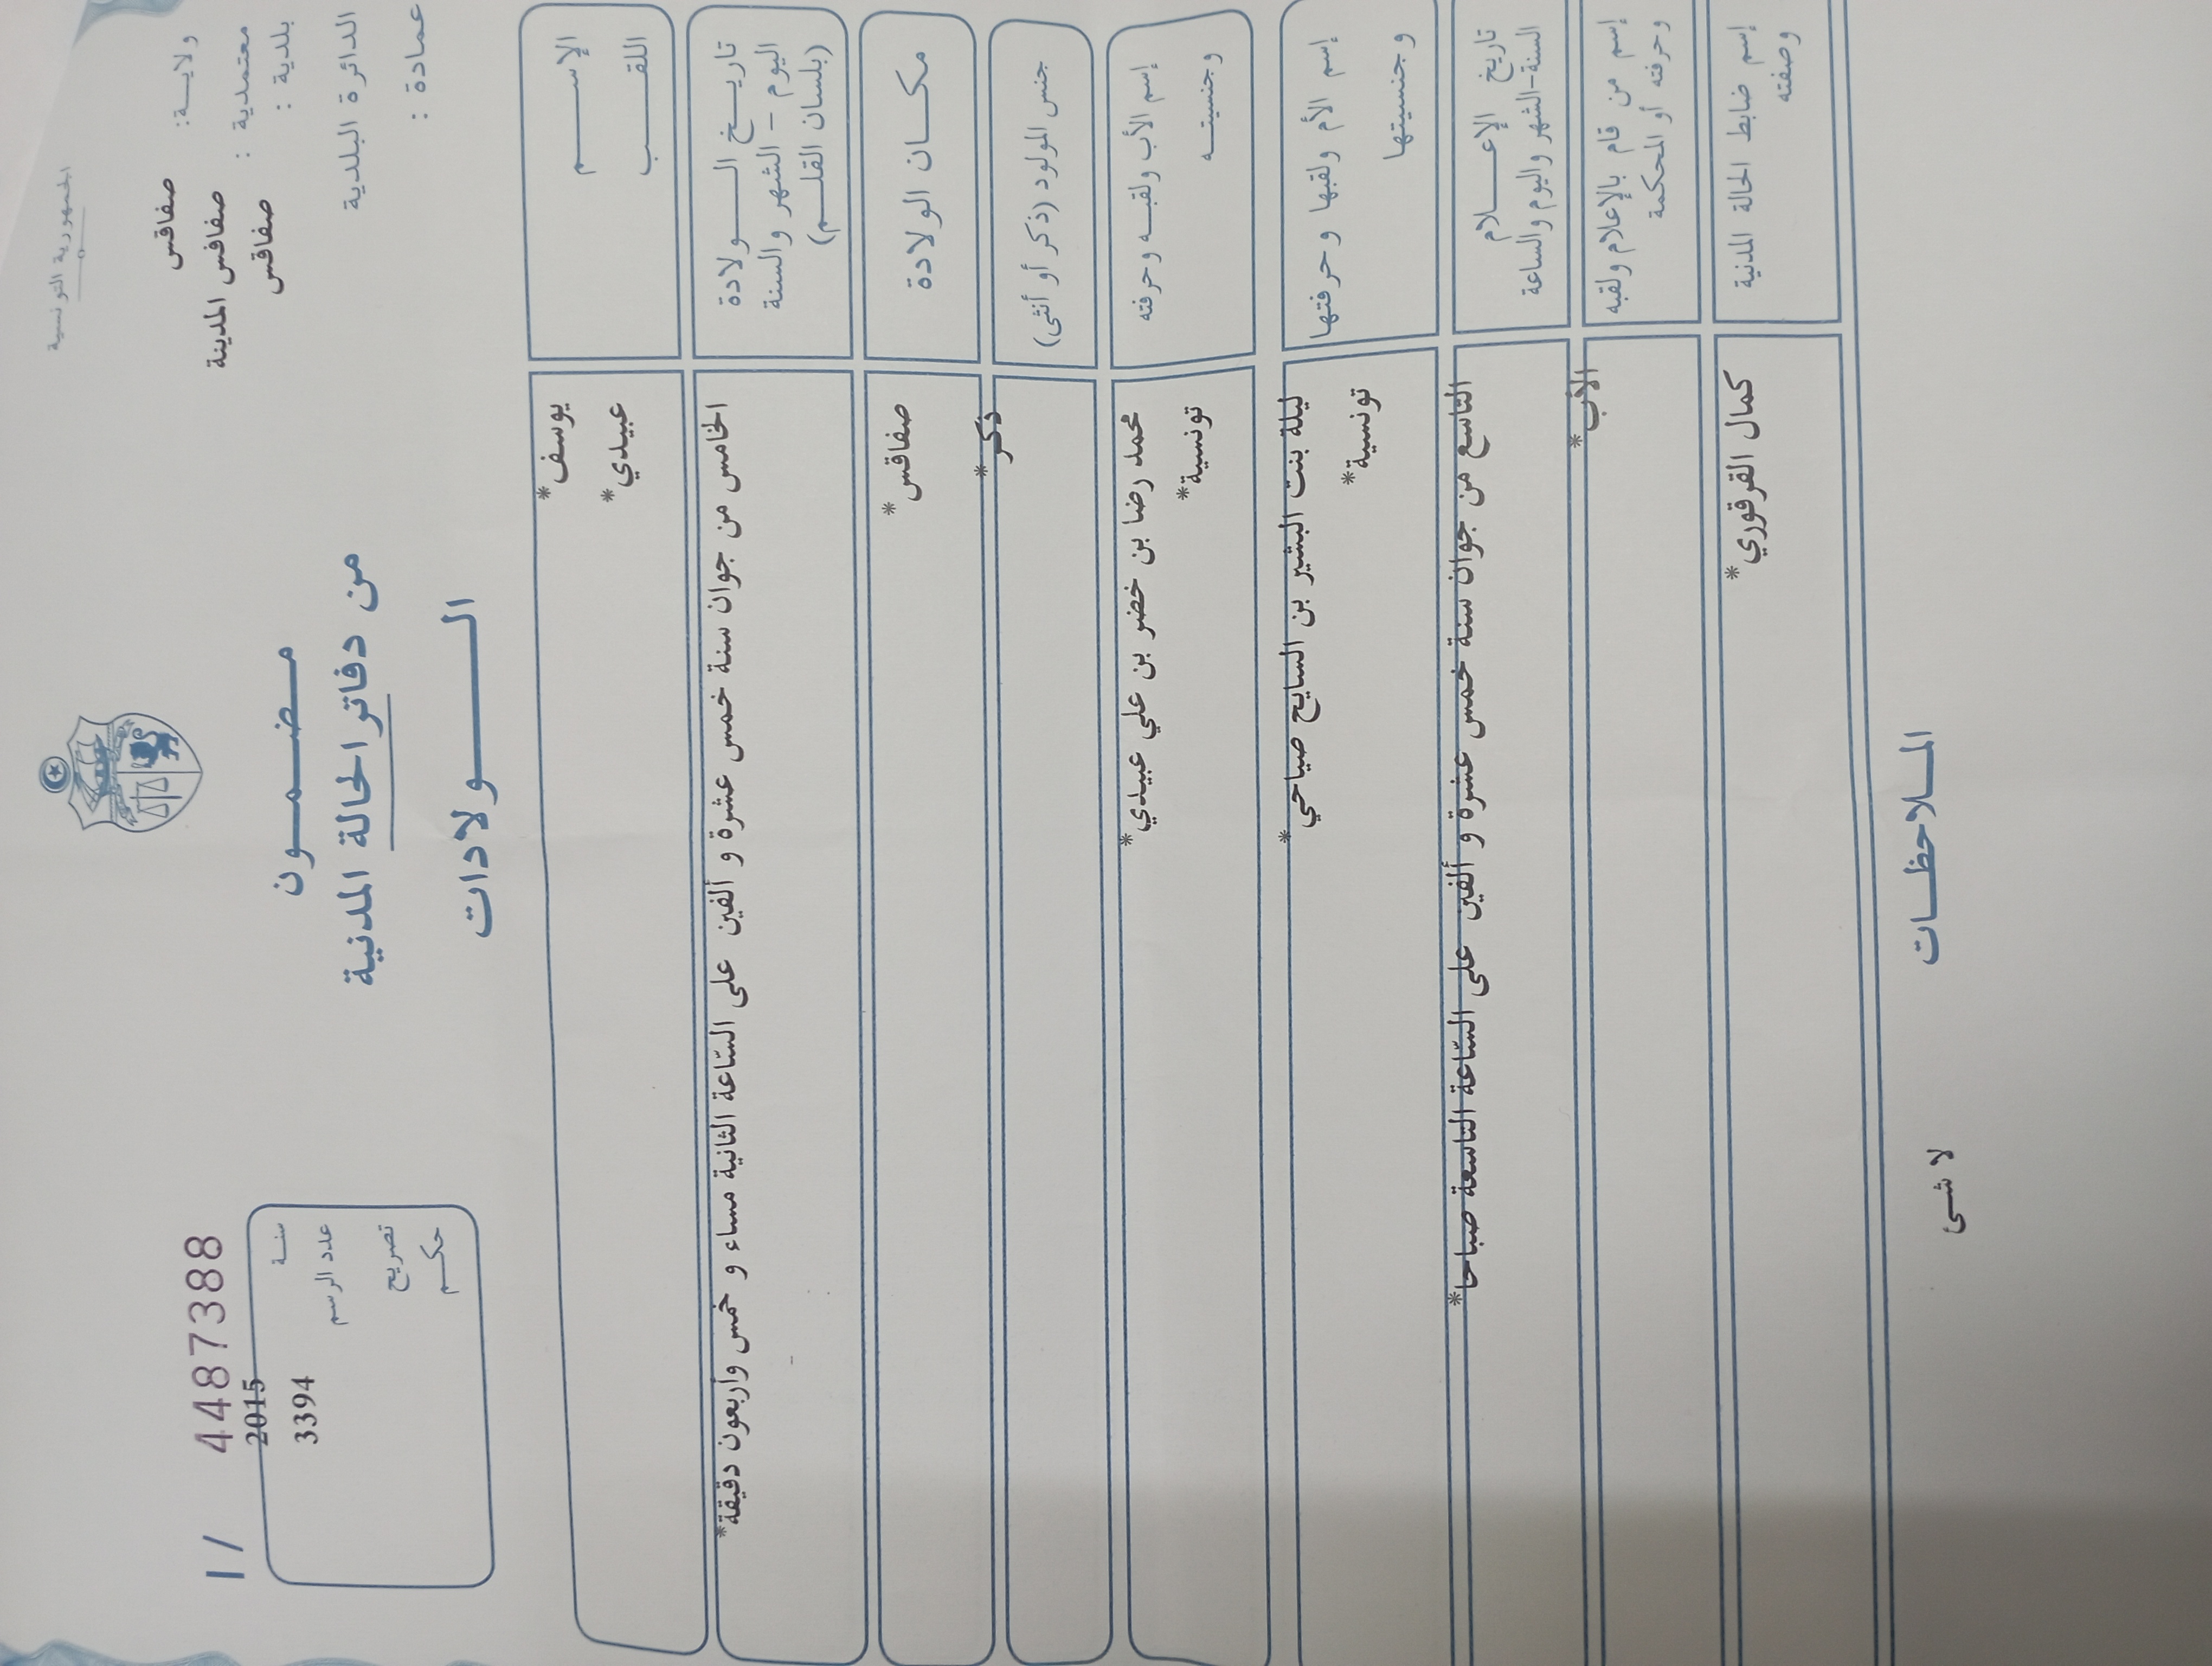 الجمهورية التونسية
ولايـــة: صفاقس
معتمدية : صفاقس المدينة
بلدية : صفاقس
الدائرة البلدية
عمادة :
مـــضـــمـــون
من دفاتر الحالة المدنية
الــــــولادات
I/ 4487388
سنـــة 2015
عدد الرسم 3394
تصريح
حكـــم
الإســـــم يوسف*
اللقـــــب عبيدي*
تاريـــخ الـــــولادة الخامس من جوان سنة خمس عشرة و ألفين على السّاعة الثانية مساء و خمس وأربعون دقيقة*
اليوم – الشهر والسنة
(بلسان القلـــم)
مكـــان الولادة صفاقس*
جنس المولود (ذكر أو أنثى) ذكر*
إسم الأب ولقبـــه وحرفته محمد رضا بن خضر بن علي عبيدي*
وجنسيتـــه تونسية*
إسم الأم ولقبها وحرفتها ليلة بنت البشير بن السايح صياحي*
وجنسيتها تونسية*
تاريخ الإعـــــلام التاسع من جوان سنة خمس عشرة و ألفين على السّاعة التاسعة صباحا*
السنة-الشهر واليوم والساعة
إسم من قام بالإعلام ولقبه الأب*
وحرفته أو المحكمة
إسم ضابط الحالة المدنية كمال القرقوري*
وصفته
المـــلاحظـــات
لا شئ